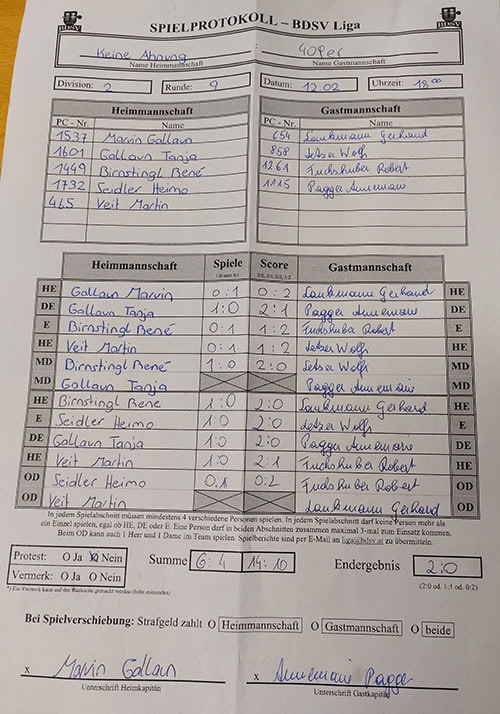 BDSV SPIELPROTOKOLL – BDSV Liga BDSV
Keine Ahnung : 409er
Name Heimmannschaft Name Gastmannschaft
Division: 2 Runde: 9 Datum: 12.02 Uhrzeit: 18 00
Heimmannschaft Gastmannschaft
PC - Nr. Name PC - Nr. Name
1537 Marvin Gallaun 654 Lankmann Gerhard
1601 Gallaun Tanja 858 Letzer Wolfi
1449 Birnstingl René 1261 Fuchshuber Robert
1732 Seidler Heimo 1115 Pagger Annemarie
465 Veit Martin
Heimmannschaft Spiele Score Gastmannschaft
HE Gallaun Marvin 0:1 0:2 Lankmann Gerhard HE
DE Gallaun Tanja 1:0 2:1 Pagger Annemarie DE
E Birnstingl René 0:1 1:2 Fuchshuber Robert E
HE Veit Martin 0:1 1:2 Letzer Wolfi HE
MD Birnstingl René 1:0 2:0 Letzer Wolfi MD
MD Gallaun Tanja Pagger Annemarie MD
HE Birnstingl Rene 1:0 2:0 Lankmann Gerhard HE
E Seidler Heimo 1:0 2:0 Letzer Wolfi E
DE Gallaun Tanja 1:0 2:0 Pagger Annemarie DE
HE Veit Martin 1:0 2:1 Fuchshuber Robert HE
OD Seidler Heimo 0:1 0:2 Fuchshuber Robert OD
OD Veit Martin Lankmann Gerhard OD
In jedem Spielabschnitt müssen mindestens 4 verschiedene Personen spielen. In jedem Spielabschnitt darf keine Person mehr als
ein Einzel spielen, egal ob HE, DE oder E. Eine Person darf in beiden Abschnitten zusammen maximal 3-mal zum Einsatz kommen.
Beim OD kann auch 1 Herr und 1 Dame im Team spielen. Spielberichte sind per E-Mail an liga@bdsv.at zu übermitteln.
Protest: O Ja O Nein Summe 6:4 14:10 Endergebnis 2:0
Vermerk: O Ja O Nein (2:0 od. 1:1 od. 0:2)
*) Ein Vermerk kann auf der Rückseite gemacht werden (bitte ankreuzen)
Bei Spielverschiebung: Strafgeld zahlt O Heimmannschaft O Gastmannschaft O beide
x Marvin Gallaun x Annemarie Pagger
Unterschrift Heimkapitän Unterschrift Gastkapitän